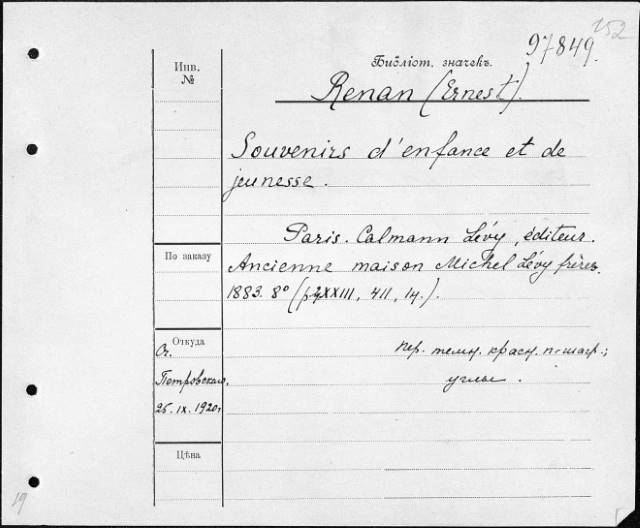 252
97849.
Инв.
№
Библіот. значекъ.
Renan (Ernest).
Souvenirs d'enfance et de
jeunesse.
Paris. Calmann Lévy, éditeur.
Ancienne maison Michel Lévy frères.
1883. 8° (XXIII, 411, 14.).
По заказу
Откуда
От.
Петровскаго.
25.IX.1920г
пер. темн. красн. п-шагр.;
углы.
Цѣна
19